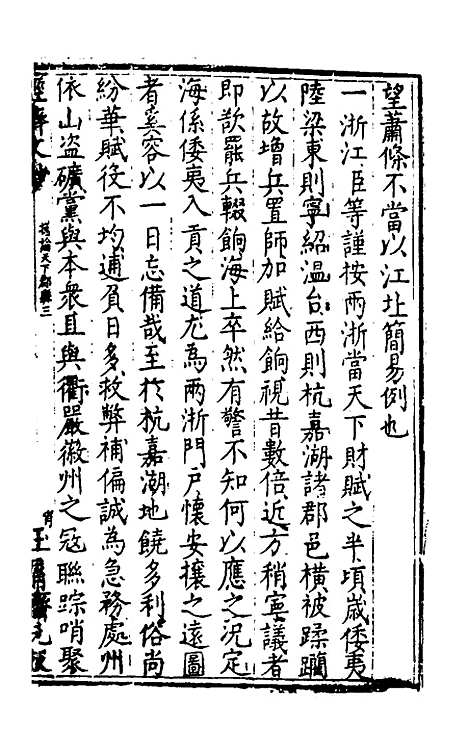 望蕭條不當以江北簡易例也
一浙江臣等謹按兩浙當天下財賦之半頃歲倭夷
陸梁東則寧紹温台西則杭嘉湖諸郡邑横被蹂躪
以故增兵置師加賦給餉視昔數倍近方稍寧議者
即欲罷兵輟餉海上卒然有警不知何以應之況定
海係倭夷入貢之道尤為兩浙門户懷安攘之遠圖
者奚容以一日忘備哉至於杭嘉湖地饒多利俗尚
紛華賦役不均逋負日多救弊補偏誠為急務處州
依山盜礦黨與本衆且與衢嚴徽州之寇聯踪哨聚
經濟文
總論天下郡縣三